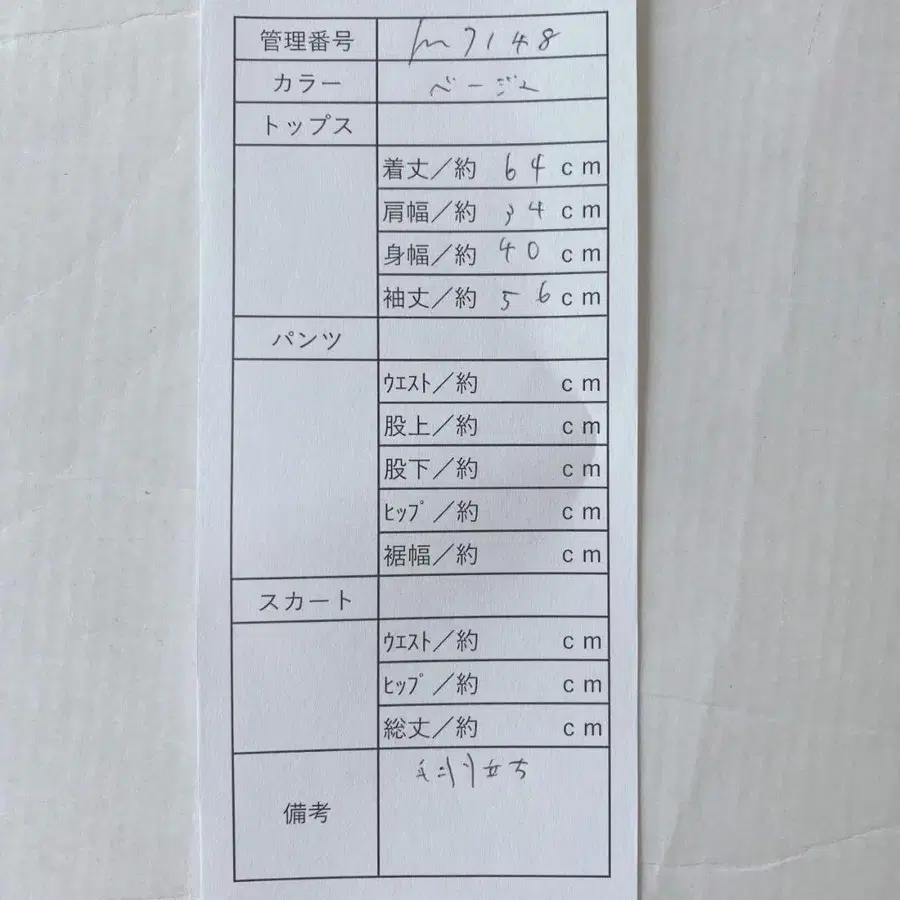 管理番号 m7148
カラー ベージュ
トップス
着丈／約 64 cm
肩幅／約 34 cm
身幅／約 40 cm
袖丈／約 56 cm
パンツ
ｳｴｽﾄ／約 cm
股上／約 cm
股下／約 cm
ﾋｯﾌﾟ／約 cm
裾幅／約 cm
スカート
ｳｴｽﾄ／約 cm
ﾋｯﾌﾟ／約 cm
総丈／約 cm
備考 毛羽立ち